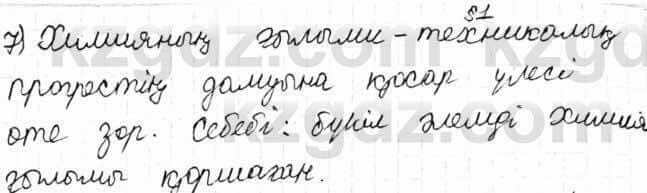 s1
7) Химияның ғылыми-техникалық
прогрестің дамуына қосар үлесі
өте зор. Себебі: бүкіл әлемді химия
ғылымы қоршаған.
kzgdz.com